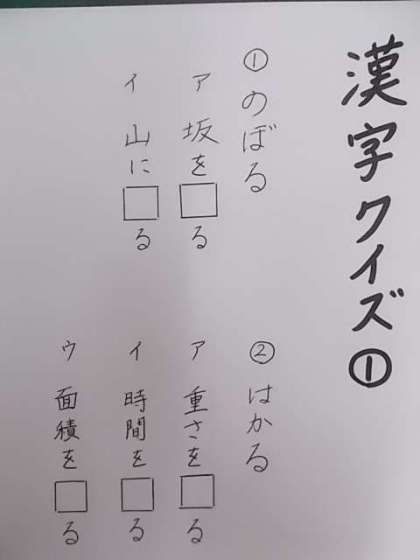 漢字クイズ①
①のぼる
ア 坂を□る
イ 山に□る
②はかる
ア 重さを□る
イ 時間を□る
ウ 面積を□る